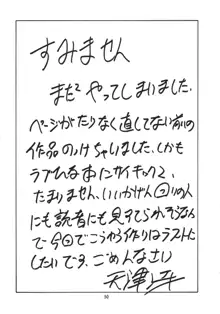 すみません
まだやってしまいました。
ページがたりなく直してない前の
作品のっけちゃいました、しかも
ラブひな本にサイキック2、
たまりません、いいかげん回りの人
にも読者にも見すてられそうなん
で今回でこうゆう作りはラストに
したいです、ごめんなさい